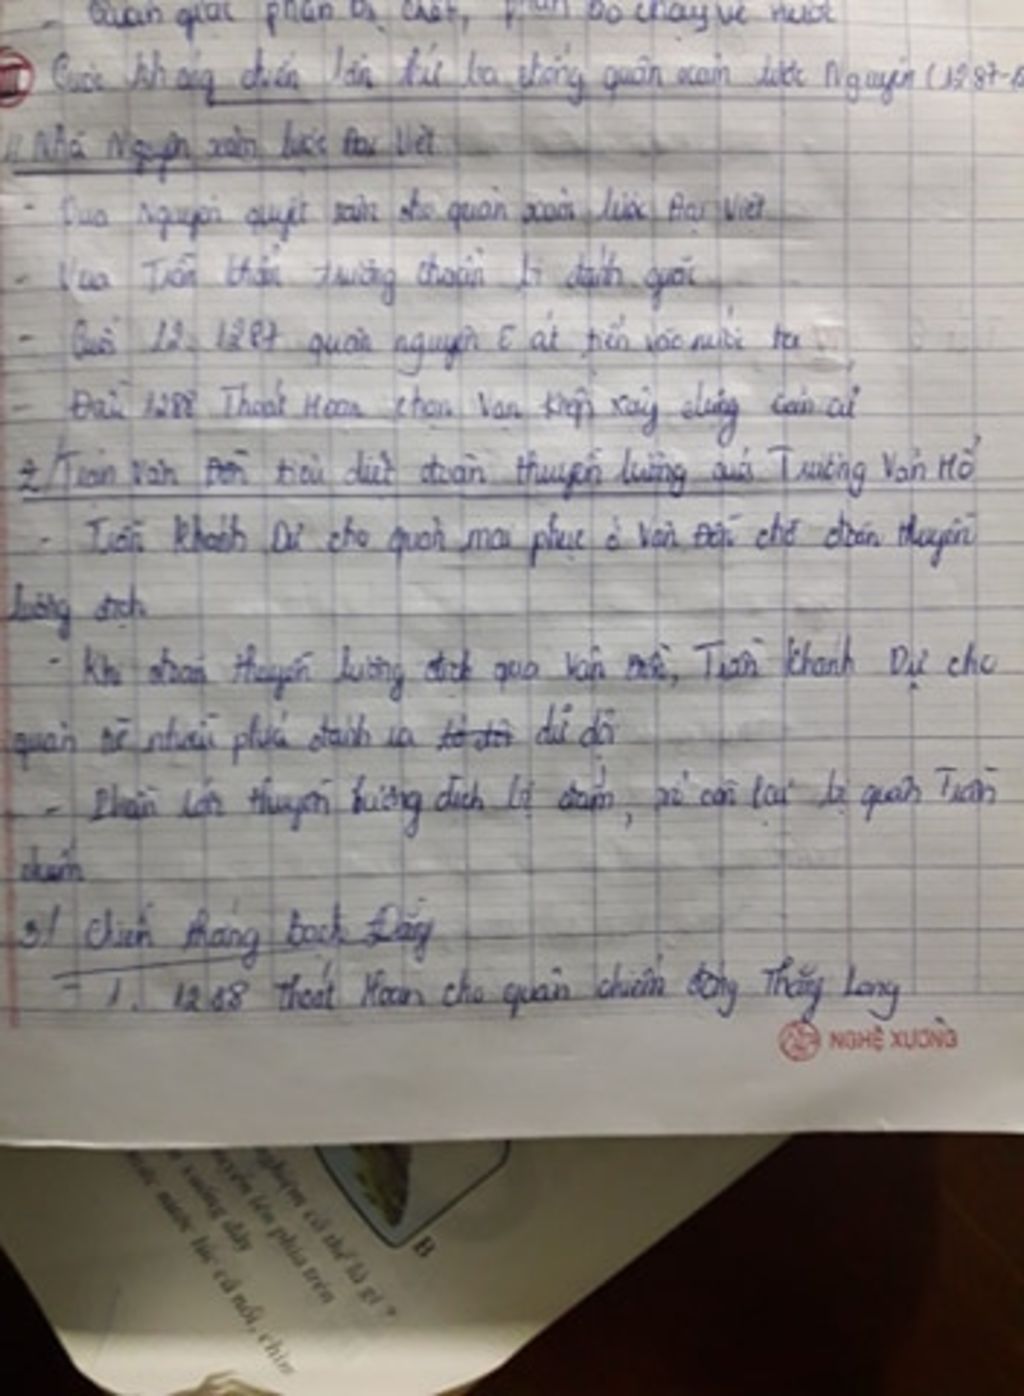 - Quân giặc phần bị chết, phần bỏ chạy về nước
III Cuộc kháng chiến lần thứ ba chống quân xâm lược Nguyên (1287-
1/ Nhà Nguyên xâm lược Đại Việt
- Vua Nguyên quyết tâm cho quân xâm lược Đại Việt
- Vua Trần khẩn trương chuẩn bị đánh giặc
- Cuối 12. 1287 quân nguyên ồ ạt tiến vào nước ta
- Đầu 1288 Thoát Hoan chọn Vạn Kiếp xây dựng căn cứ
2/ Trận Vân Đồn tiêu diệt đoàn thuyền lương của Trương Văn Hổ
- Trần Khánh Dư cho quân mai phục ở Vân Đồn chờ đoàn thuyền
lương địch
- Khi đoàn thuyền lương địch qua Vân Đồn, Trần Khánh Dư cho
quân từ nhiều phía đánh ra dữ dội
- Phần lớn thuyền lương địch bị đắm, số còn lại bị quân Trần
chiếm
3/ Chiến thắng bạch Đằng
- 1. 1288 Thoát Hoan cho quân chiếm đóng Thăng Long
NGHỆ XƯƠNG
B
nghiệm có thể là gì ?
chuyển lên phía trên
xuống đáy
nước lúc cá nổi, chìm